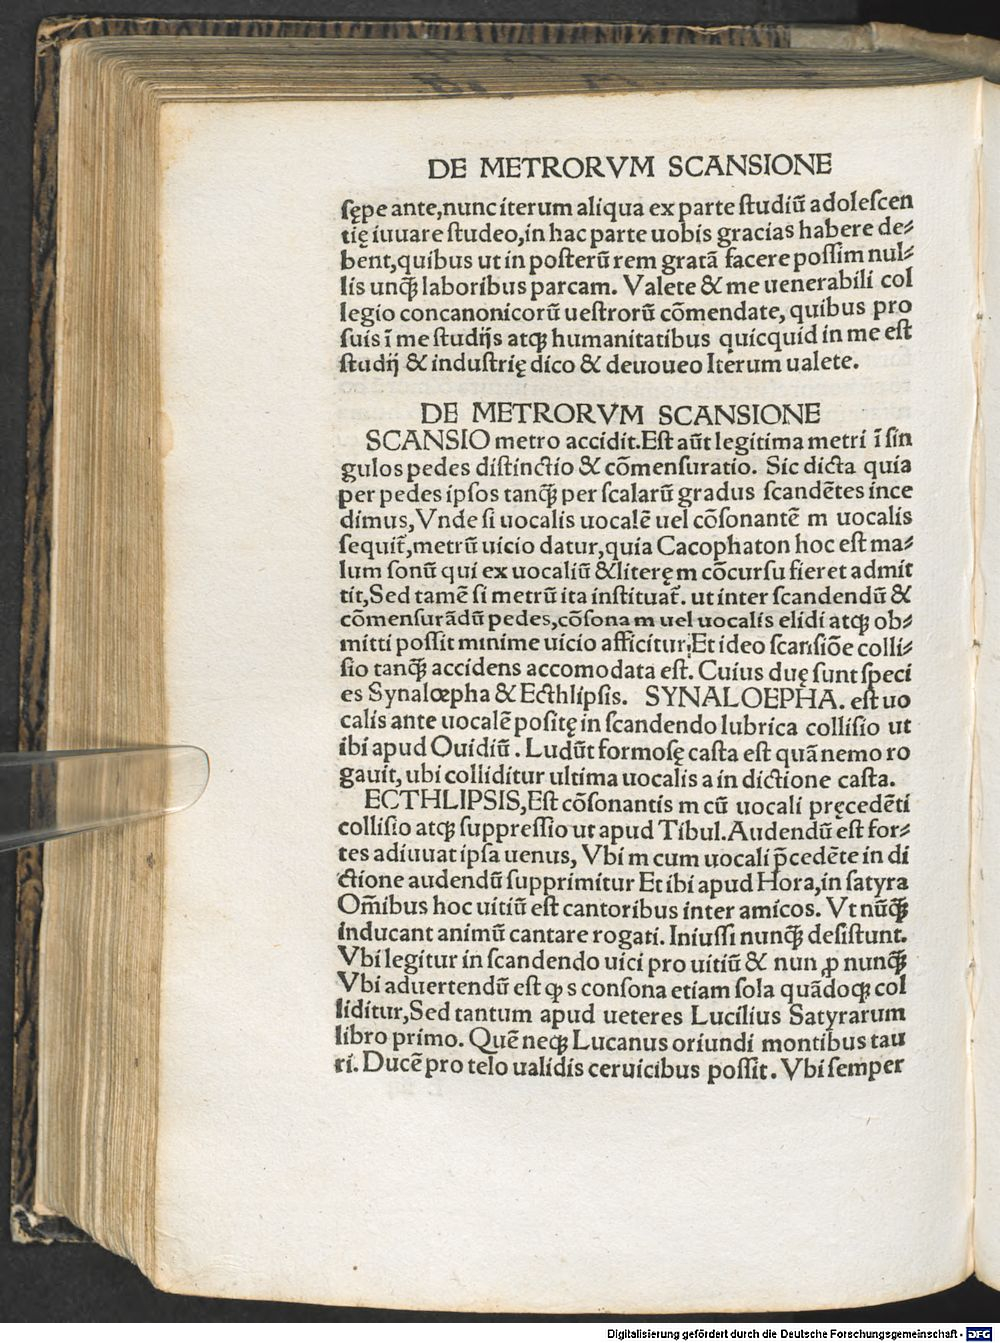 DE METRORVM SCANSIONE
ſępe ante,nunc iterum aliqua ex parte ſtudiū adoleſcen
tię iuuare ſtudeo,in hac parte uobis gracias habere de⸗
bent,quibus ut in poſterū rem gratā facere poſſim nul⸗
lis unꝗ̃ laboribus parcam. Valete & me uenerabili col
legio concanonicorū ueſtrorū cōmendate, quibus pro
ſuis ī me ſtudijs atqꝫ humanitatibus quicquid in me eſt
ſtudij & induſtrię dico & deuoueo Iterum ualete.
DE METRORVM SCANSIONE
SCANSIO metro accidit.Eſt aūt legitima metri ī ſin
gulos pedes diſtinctio & cōmenſuratio. Sic dicta quia
per pedes ipſos tanꝗ̃ per ſcalarū gradus ſcandētes ince
dimus,Vnde ſi uocalis uocalē uel cōſonantē m uocalis
ſequit̃,metrū uicio datur,quia Cacophaton hoc eſt ma⸗
lum ſonū qui ex uocaliū &literę m cōcurſu fieret admit
tit,Sed tamē ſi metrū ita inſtituat̃. ut inter ſcandendū &
cōmenſurādū pedes,cōſona m uel uocalis elidi atqꝫ ob⸗
mitti poſſit minime uicio afficitur;Et ideo ſcanſiōe colli⸗
ſio tanꝗ̃ accidens accomodata eſt. Cuius duę ſunt ſpeci
es Synalœpha & Ecthlipſis. SYNALOEPHA. eſt uo
calis ante uocalē poſitę in ſcandendo lubrica colliſio ut
ibi apud Ouidiū. Ludūt formoſę caſta eſt quā nemo ro
gauit, ubi colliditur ultima uocalis a in dictione caſta.
ECTHLIPSIS,Eſt cōſonantis m cū uocali pręcedēti
colliſio atqꝫ ſuppreſſio ut apud Tibul.Audendū eſt for⸗
tes adiuuat ipſa uenus, Vbi m cum uocali p̄cedēte in di
ctione audendū ſupprimitur Et ibi apud Hora,in ſatyra
Om̄ibus hoc uitiū eſt cantoribus inter amicos. Vt nūꝗ̃
inducant animū cantare rogati. Iniuſſi nunꝗ̃ deſiſtunt.
Vbi legitur in ſcandendo uici pro uitiū & nun ꝓ nunꝗ̃
Vbi aduertendū eſt ꝙ s conſona etiam ſola quādoqꝫ col
liditur,Sed tantum apud ueteres Lucilius Satyrarum
libro primo. Quē neqꝫ Lucanus oriundi montibus tau
ri. Ducē pro telo ualidis ceruicibus poſſit. Vbi ſemper
Digitalisierung gefördert durch die Deutsche Forschungsgemeinschaft - DFG